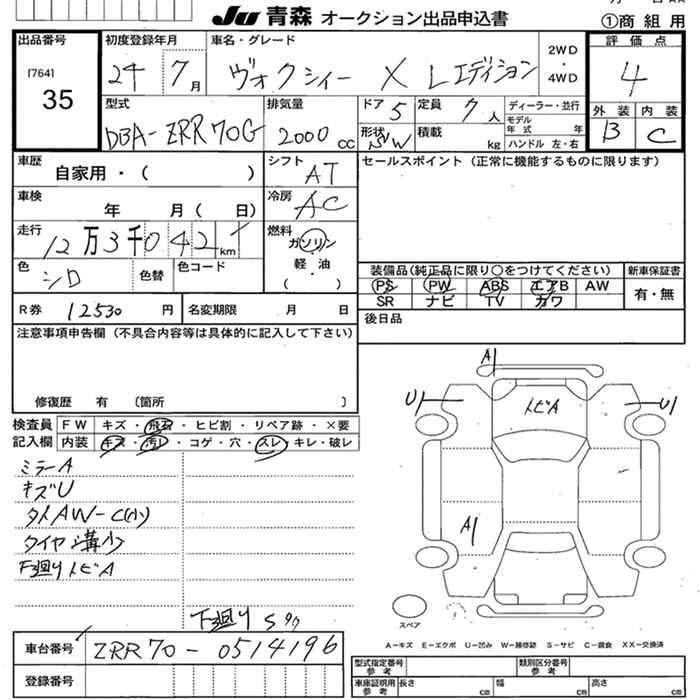 JU 青森 オークション出品申込書
①商組用
出品番号
[764]
35
初度登録年月
24 7月
車名・グレード
ヴォクシィー X Lエディション
2WD
・
4WD
評価点
4
外装 内装
B C
型式
DBA-ZRR70G
排気量
2000 cc
ドア 5
形状 S/W
定員 7人
積載 kg
ディーラー・並行
モデル年式 年
ハンドル 左・右
車歴
自家用・( )
シフト
AT
セールスポイント (正常に機能するものに限ります)
車検
年 月( 日)
冷房
AC
走行
12万3千042 km
燃料
ガソリン
・
軽・油
( )
色
シロ
色替
色コード
装備品(純正品に限り○をつけてください)
新車保証書
PS PW ABS エアB AW
SR ナビ TV カワ
有・無
R券 12530 円
名変期限 月 日
後日品
注意事項申告欄 (不具合内容等は具体的に記入して下さい)
修復歴 有 〔箇所 〕
検査員記入欄
FW キズ・飛石・ヒビ割・リペア跡・×要
内装 キズ・汚レ・コゲ・穴・スレ・キレ・破レ
ミラーA
キズU
タイAW-C(小)
タイヤ溝小
下廻りトビA
下廻りSクク
A1
U1
トビA
U1
A1
スペア
A-キズ E-エクボ U-凹み W-補修跡 S-サビ C-腐食 XX-交換済
車台番号 ZRR70-0514196
登録番号
型式指定番号 参考
類別区分番号 参考
車庫証明用 参考
長さ cm
幅 cm
高さ cm